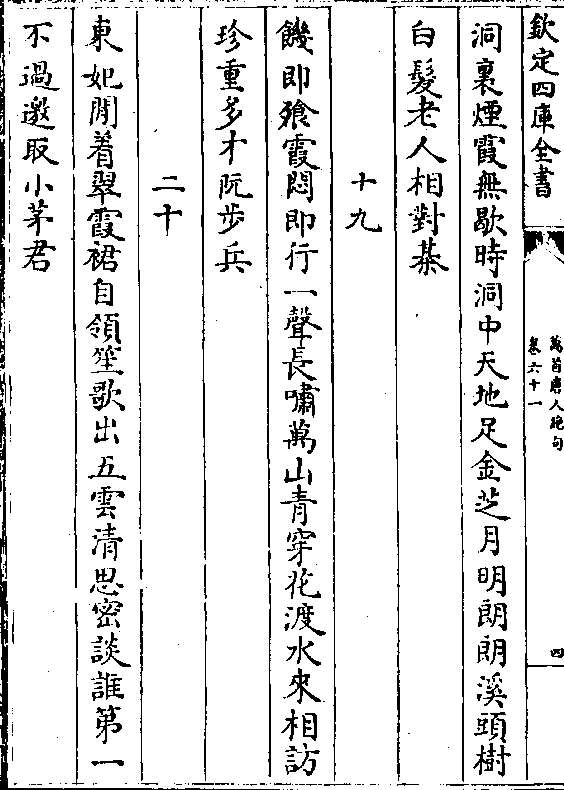 欽定四庫全書
萬首唐人絶句
卷六十一
四
洞裏煙霞無歇時洞中天地足金芝月明朗朗溪頭樹
白髮老人相對棊
十九
饑即飱霞悶即行一聲長嘯萬山青穿花渡水來相訪
珍重多才阮步兵
二十
東妃閒着翠霞裙自領笙歌出五雲清思密談誰第一
不過邀取小茅君